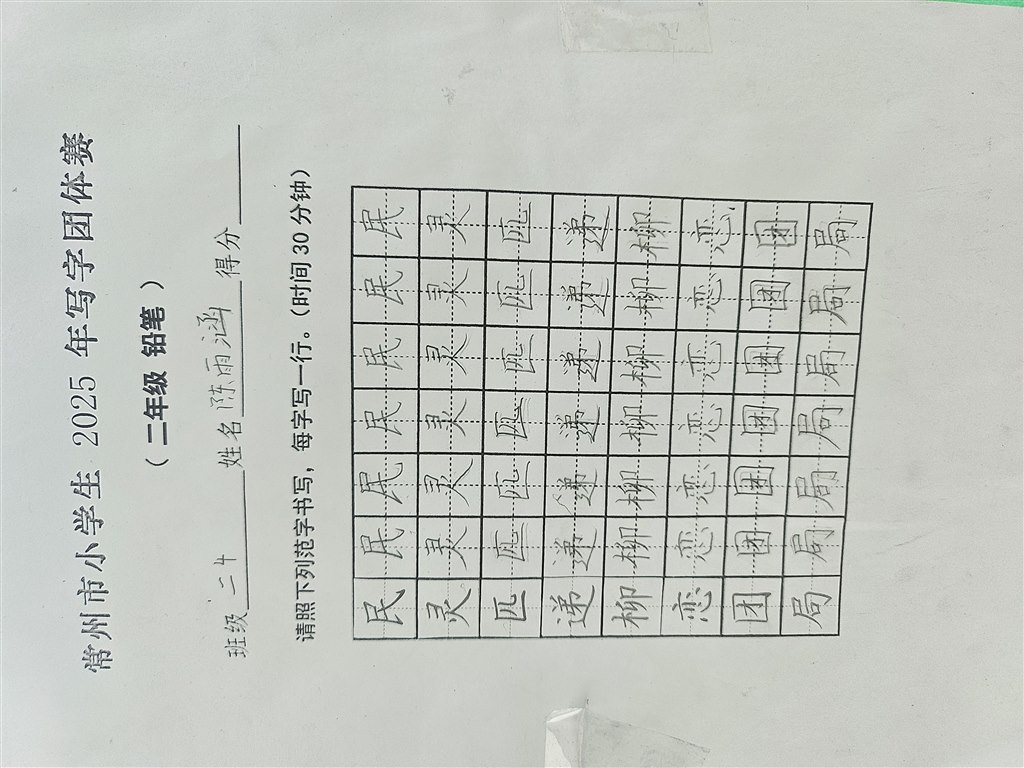 常州市小学生 2025 年写字团体赛
（ 二年级 铅笔 ）
班级 二4 姓名 陈雨涵 得分
请照下列范字书写，每字写一行。(时间 30 分钟)
民 民 民 民 民 民 民
灵 灵 灵 灵 灵 灵 灵
匹 匹 匹 匹 匹 匹 匹
递 递 递 递 递 递 递
柳 柳 柳 柳 柳 柳 柳
恋 恋 恋 恋 恋 恋 恋
团 团 团 团 团 团 团
局 局 局 局 局 局 局